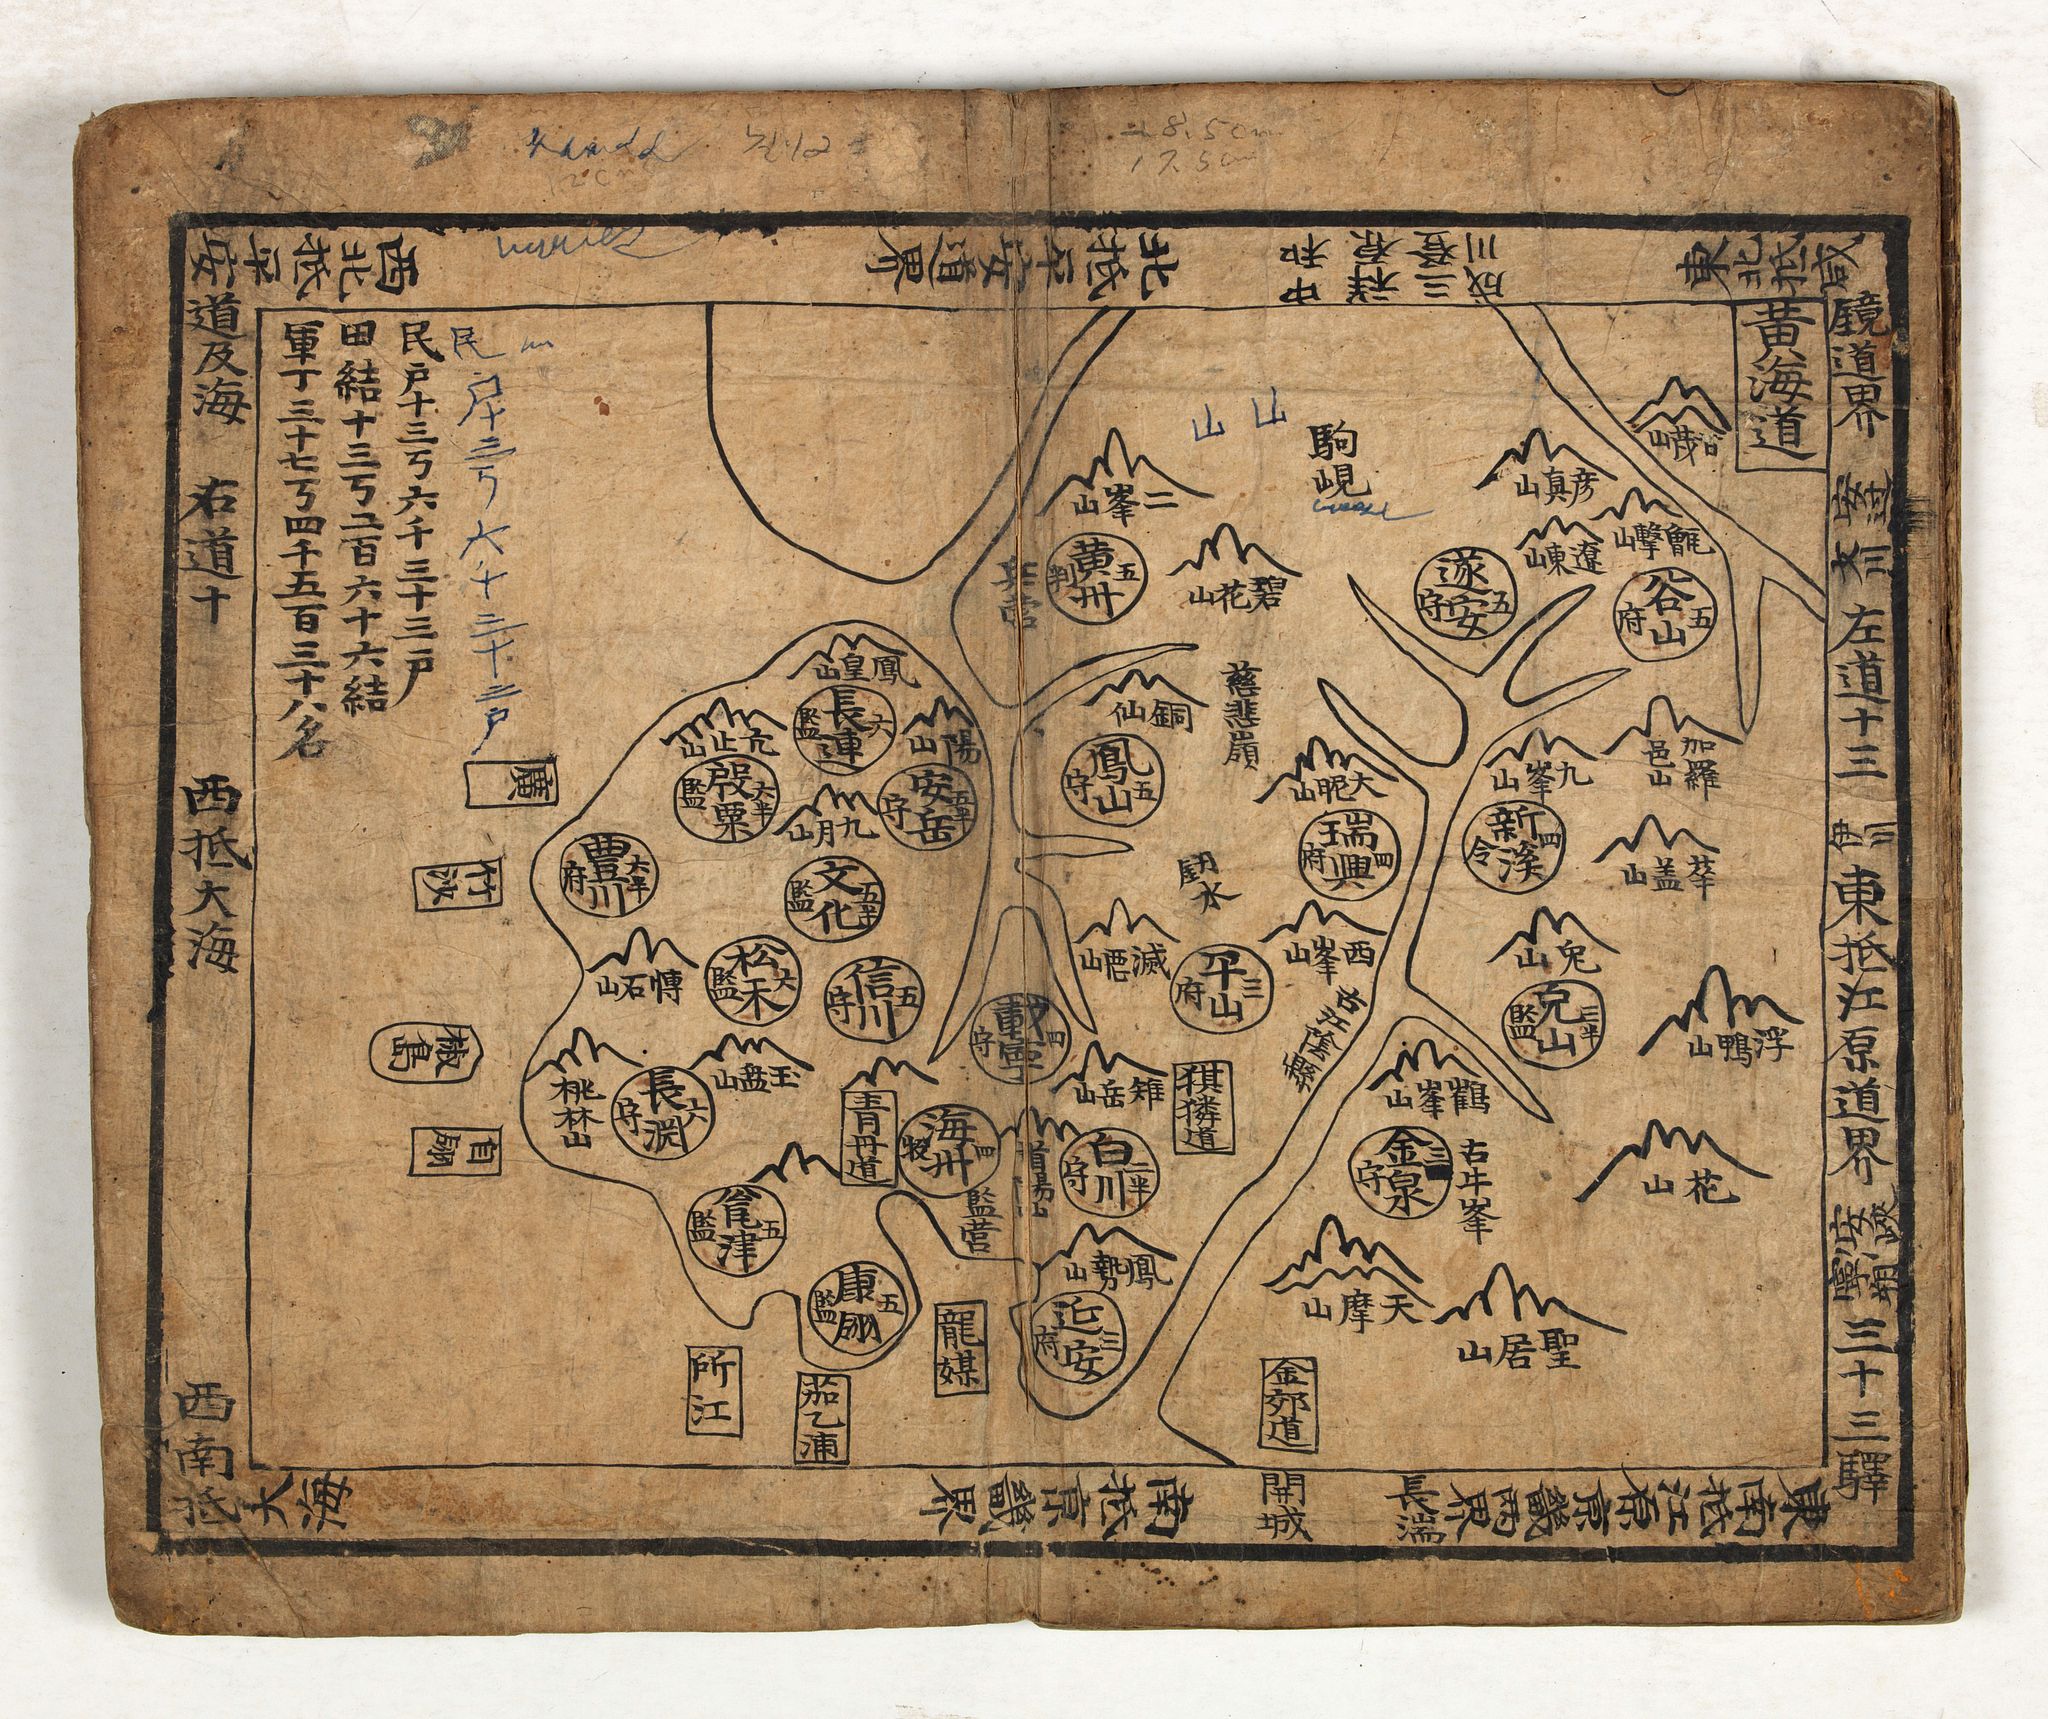 黃海道
東北抵咸
鏡道界
左道十三
東抵江原道界
三十三驛
成川
三登
祥原
中和
北抵平安道界
西北抵平安
道及海
右道十
西抵大海
西南抵
大海
南抵京畿界
開城
長湍
東南抵江原京畿兩界
民戶十三丂六千三十三戶
田結十三丂二百六十六結
軍丁三十七丂四千五百三十八名
民
戶十三丂六千三十三戶
山 山
駒峴
彦真山
遼東山
谷山 五 府
遂安 五 守
二峯山
黃州 五 判
兵営
碧花山
慈悲嶺
銅仙
鳳山 五 守
大睍山
瑞興 四 府
九峯山
新溪 四 令
加羅邑山
莘盖山
兔山
兔山 三半 監
浮鴨山
花山
鶴峯山
金泉 三 守
古牛峯
天摩山
聖居山
金郊道
古江陰縣
西峯山
平山 三 府
滅惡山
猉獜道
雉岳山
白川 二半 守
首陽山
鳳勢山
延安 三 府
載寧 四 守
海州 四 牧
監营
青丹道
龍媒
康翎 五 監
茄乙浦
所江
瓮津 五 監
長渊 六 守
桃林山
玉盘山
信川 五 守
松禾 六 監
慱石山
文化 五半 監
九月山
豊川 六半 府
殷栗 六半 監
安岳 五半 守
陽山
長連 六 監
鳳皇山
椒島